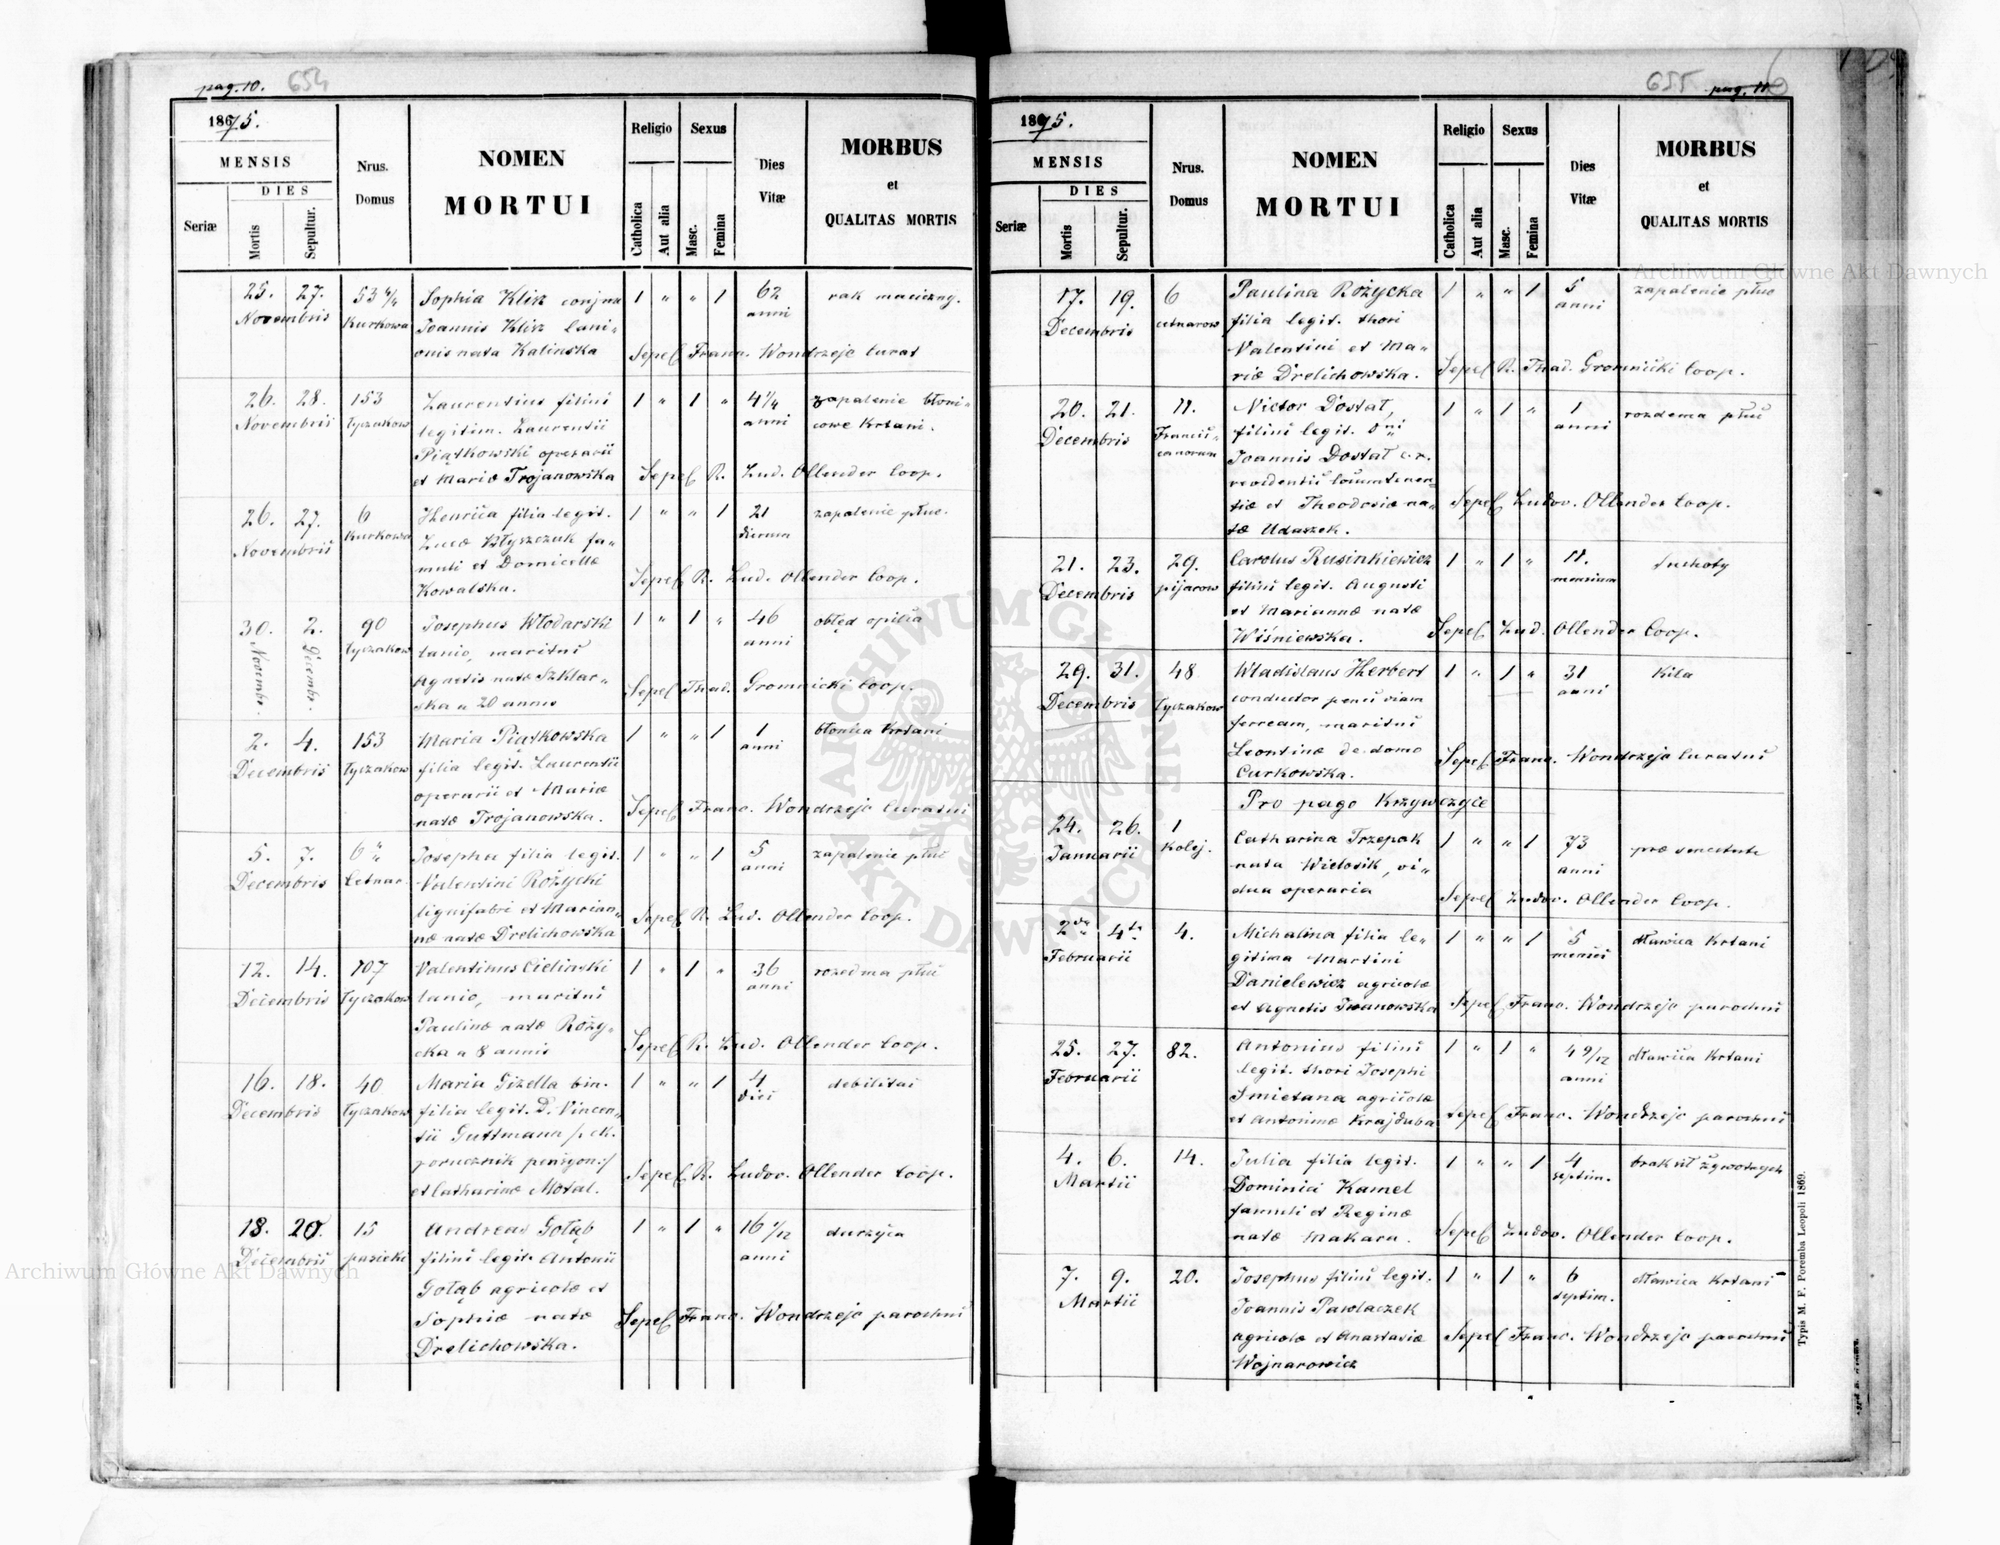 pag. 10. 654
1875.
MENSIS
DIES
Seriæ
Mortis
Sepultur.
Nrus.
Domus
NOMEN
MORTUI
Religio
Catholica
Aut alia
Sexus
Masc.
Femina
Dies
Vitæ
MORBUS
et
QUALITAS MORTIS
25. 27. 53 4/4 Sophia Klisz conjux 1 " " 1 62 rak maciczny.
Novembris Kurkowa Joannis Klisz lani- anni
onis nata Kalinska Sepel Franc. Wondrzejc Curat
26. 28. 153 Laurentius filius 1 " 1 " 4 1/4 zapalenie błoni-
Novembris Łyczakow legitim. Laurentii anni cowe Krtani.
Piątkowski operarii
et Mariæ Trojanowska Sepel R. Lud. Ollender Coop.
26. 27. 6 Henrica filia legit. 1 " " 1 21 zapalenie płuc.
Novembris Kurkowa Lucæ Błyszczuk fa- dierum
muli et Domicellæ Sepel R. Lud. Ollender Coop.
Kowalska.
30. 2. 90 Josephus Włodarski 1 " 1 " 46 obłęd opilia
Novembr. Decembr. Łyczakow lanio, maritus anni
Agnetis natæ Szklar- Sepel Thad. Gromnicki Coop.
ska a 20 annis
2. 4. 153 Maria Piątkowska 1 " " 1 1 błonica Krtani
Decembris Łyczakow filia legit. Laurentii anni
operarii et Mariæ Sepel Franc. Wondrzejc Curatus
natæ Trojanowska.
5. 7. 6 Josepha filia legit. 1 " " 1 5 zapalenie płuc
Decembris Cetnar Valentini Rożycki anni
lignifabri et Marian- Sepel R. Lud. Ollender Coop.
næ natæ Drelichowska
12. 14. 107 Valentinus Cielinski 1 " 1 " 36 rozedma płuc
Decembris Łyczakow lanio, maritus anni
Paulinæ natæ Rozy-
cka a 8 annis Sepel R. Lud. Ollender Coop.
16. 18. 40 Maria Gizella bin. 1 " " 1 4 debilitas
Decembris Łyczakow filia legit. D. Vincen- dies
tii Guttmann /: ck.
porucznik pensyon :/ Sepel R. Ludov. Ollender Coop.
et Catharinæ Motal.
18. 20. 15 Andreas Gołąb 1 " 1 " 16 1/12 durzyca
Decembris pasieki filius legit. Antonii anni
Gołąb agricolæ et
Sophiæ natæ Sepel Franc. Wondrzejc parochus
Drelichowska.
655 pag. 11. 6
1875.
MENSIS
DIES
Seriæ
Mortis
Sepultur.
Nrus.
Domus
NOMEN
MORTUI
Religio
Catholica
Aut alia
Sexus
Masc.
Femina
Dies
Vitæ
MORBUS
et
QUALITAS MORTIS
17. 19. 6 Paulina Rożycka 1 " " 1 5 zapalenie płuc
Decembris cetnarow filia legit. thori anni
Valentini et Ma-
riæ Drelichowska. Sepel R. Thad. Gromnicki Coop.
20. 21. 11. Victor Dostal, 1 " 1 " 1 rozdema płuc
Decembris Francis- filius legit. Dni anni
canorum Joannis Dostal c. r.
revidentis
tiæ et Theodosiæ na- Sepel Ludov. Ollender Coop.
tæ Udaszek.
21. 23. 29. Carolus Rusinkiewicz 1 " 1 " 11. suchoty
Decembris pijarow filius legit. Augusti mensium
et Mariannæ natæ
Wiśniewska. Sepel Lud. Ollender Coop.
29. 31. 48 Wladislaus Herbert 1 " 1 " 31 Kila
Decembris Łyczakow conductor penes viam anni
ferream, maritus
Leontinæ de domo Sepel Franc. Wondrzejc Curatus
Curkowska.
Pro pago Krzywczyce
24. 26. 1 Catharina Trzepak 1 " " 1 73 præ senectute
Januarii Kolej. nata Wielosik, vi- anni
dua operaria Sepel Ludov. Ollender Coop.
2da 4ta 4. Michalina filia le- 1 " " 1 5 dławica Krtani
Februarii gitima Martini menses
Danielewicz agricolæ
et Agnetis Iwanowska Sepel Franc. Wondrzejc parochus
25. 27. 82. Antonius filius 1 " 1 " 4 9/12 dławica Krtani
Februarii legit. thori Josephi anni
Smietana agricolæ
et Antoninæ Krajduba Sepel Franc. Wondrzejc parochus
4. 6. 14. Julia filia legit. 1 " " 1 4 brak sił żywotnych
Martii Dominici Kamel septim.
famuli et Reginæ
natæ Makara. Sepel Ludov. Ollender Coop.
7. 9. 20. Josephus filius legit. 1 " 1 " 6 dławica Krtani
Martii Joannis Pawlaczek septim.
agricolæ et Anastasiæ Sepel Franc. Wondrzejc parochus
Wojnarowicz
Typis M. F. Poremba Leopoli 1869.
Archiwum Główne Akt Dawnych
Archiwum Główne Akt Dawnych
ARCHIWUM GŁÓWNE AKT DAWNYCH